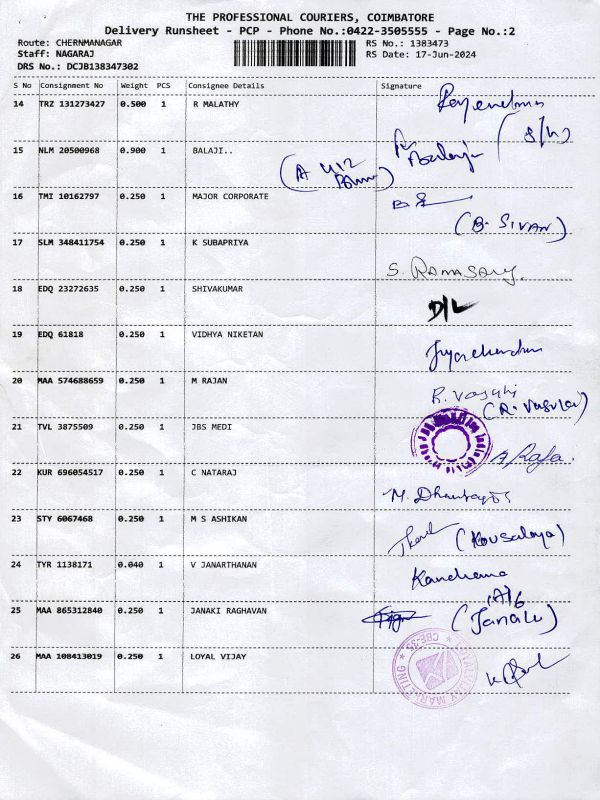 THE PROFESSIONAL COURIERS, COIMBATORE
Delivery Runsheet - PCP - Phone No.:0422-3505555 - Page No.:2
Route: CHERNMANAGAR
RS No.: 1383473
Staff: NAGARAJ
RS Date: 17-Jun-2024
DRS No.: DCJB138347302
S No Consignment No Weight PCS Consignee Details Signature
14 TRZ 131273427 0.500 1 R MALATHY
15 NLM 20500968 0.900 1 BALAJI.. Balaji
16 TMI 10162797 0.250 1 MAJOR CORPORATE
(B. SIVAN)
17 SLM 348411754 0.250 1 K SUBAPRIYA
S. RAMASAMY.
18 EDQ 23272635 0.250 1 SHIVAKUMAR D/L
19 EDQ 61818 0.250 1 VIDHYA NIKETAN
20 MAA 574688659 0.250 1 M RAJAN
21 TVL 3875509 0.250 1 JBS MEDI
A Raja.
22 KUR 696054517 0.250 1 C NATARAJ
23 STY 6067468 0.250 1 M S ASHIKAN
(Kousalaya)
24 TYR 1138171 0.040 1 V JANARTHANAN
25 MAA 865312840 0.250 1 JANAKI RAGHAVAN
26 MAA 108413019 0.250 1 LOYAL VIJAY